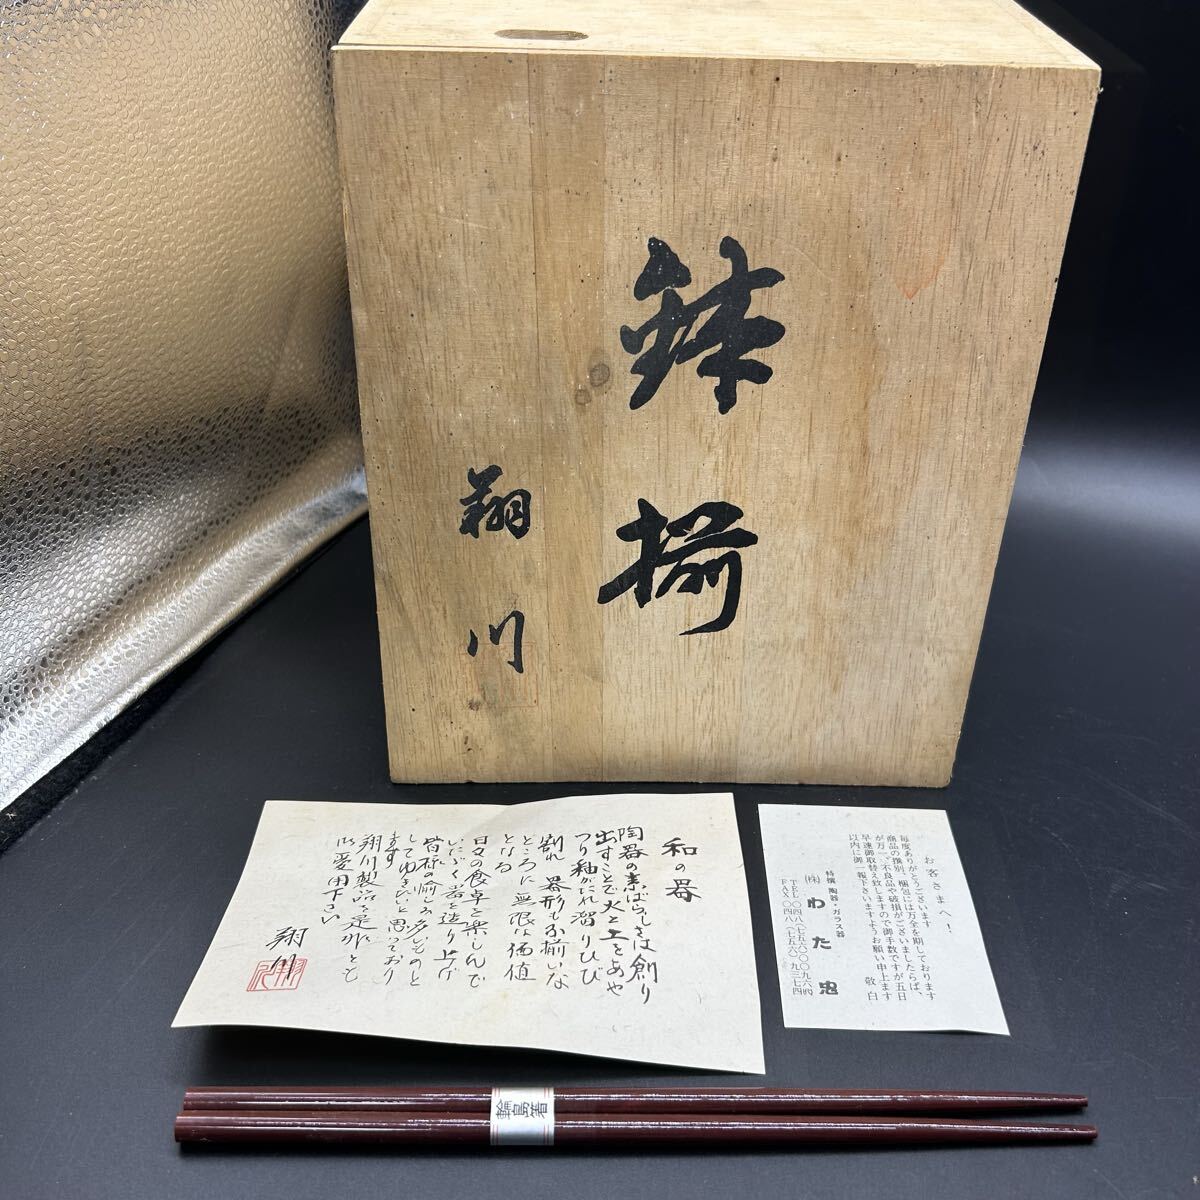 鉢揃
翔川
和の器
陶器の素ばらしさは創り
出すことで火と土をあや
つり釉がたれ溜りひび
割れ 器形も不揃いな
ところに無限な価値
となる
日々の食卓を楽しんで
いただく器を造り上げ
皆様の愉しみ多いものと
してゆきたいと思っており
ます
翔川製品を是非とも
御愛用下さい
翔川
お客さまへ!
毎度ありがとうございます
商品の撰別、梱包には万全を期しております
が万一、不良品や破損がございましたらば、
早速御取替え致しますので御手数ですが五日
以内に御一報下さいますようお願い申上ます
敬白
特撰 陶器・ガラス器
(株)わた忠
TEL〇四八(七五六)〇〇九六㈹
FAX〇四八(七五六)九三七四
輪島箸